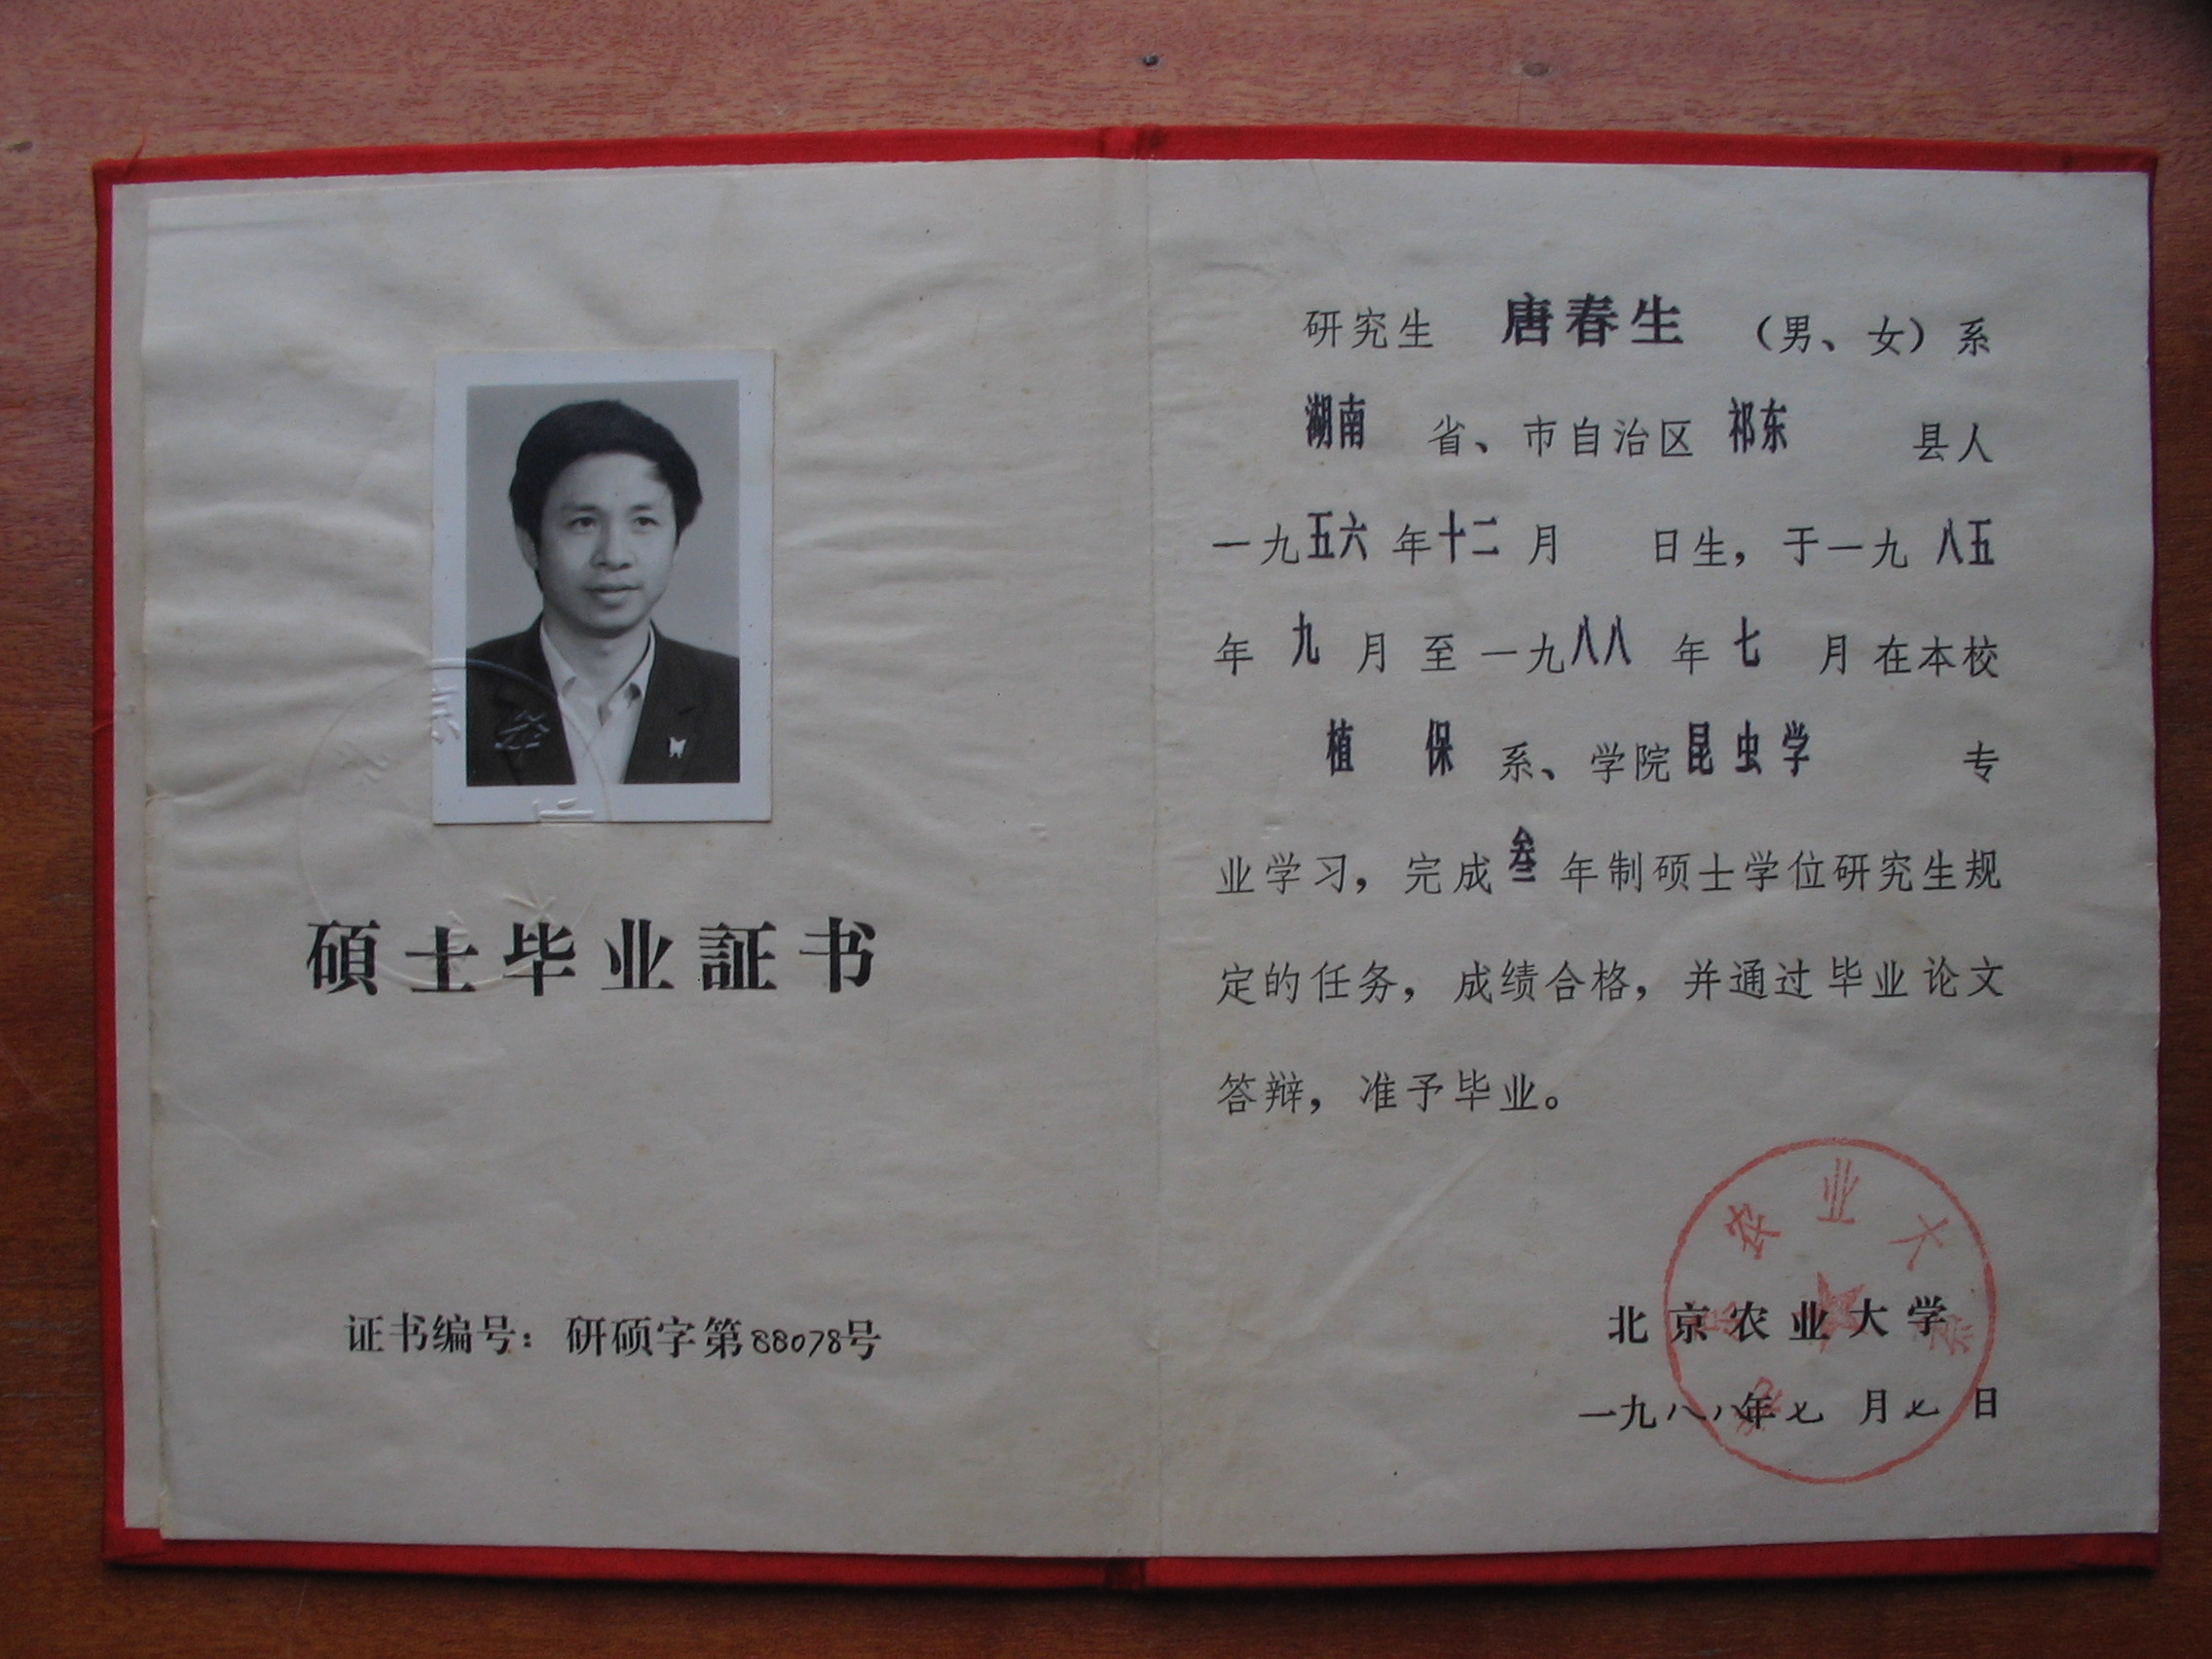 硕士毕业証书
证书编号：研硕字第88078号
研究生 唐春生 （男、女）系
湖南 省、市自治区 祁东 县人
一九五六年十二月 日生，于一九八五
年 九 月 至 一九八八 年 七 月 在本校
植 保 系、学院 昆虫学 专
业学习，完成叁年制硕士学位研究生规
定的任务，成绩合格，并通过毕业论文
答辩，准予毕业。
北京农业大学
一九八八年七月七日
农业大